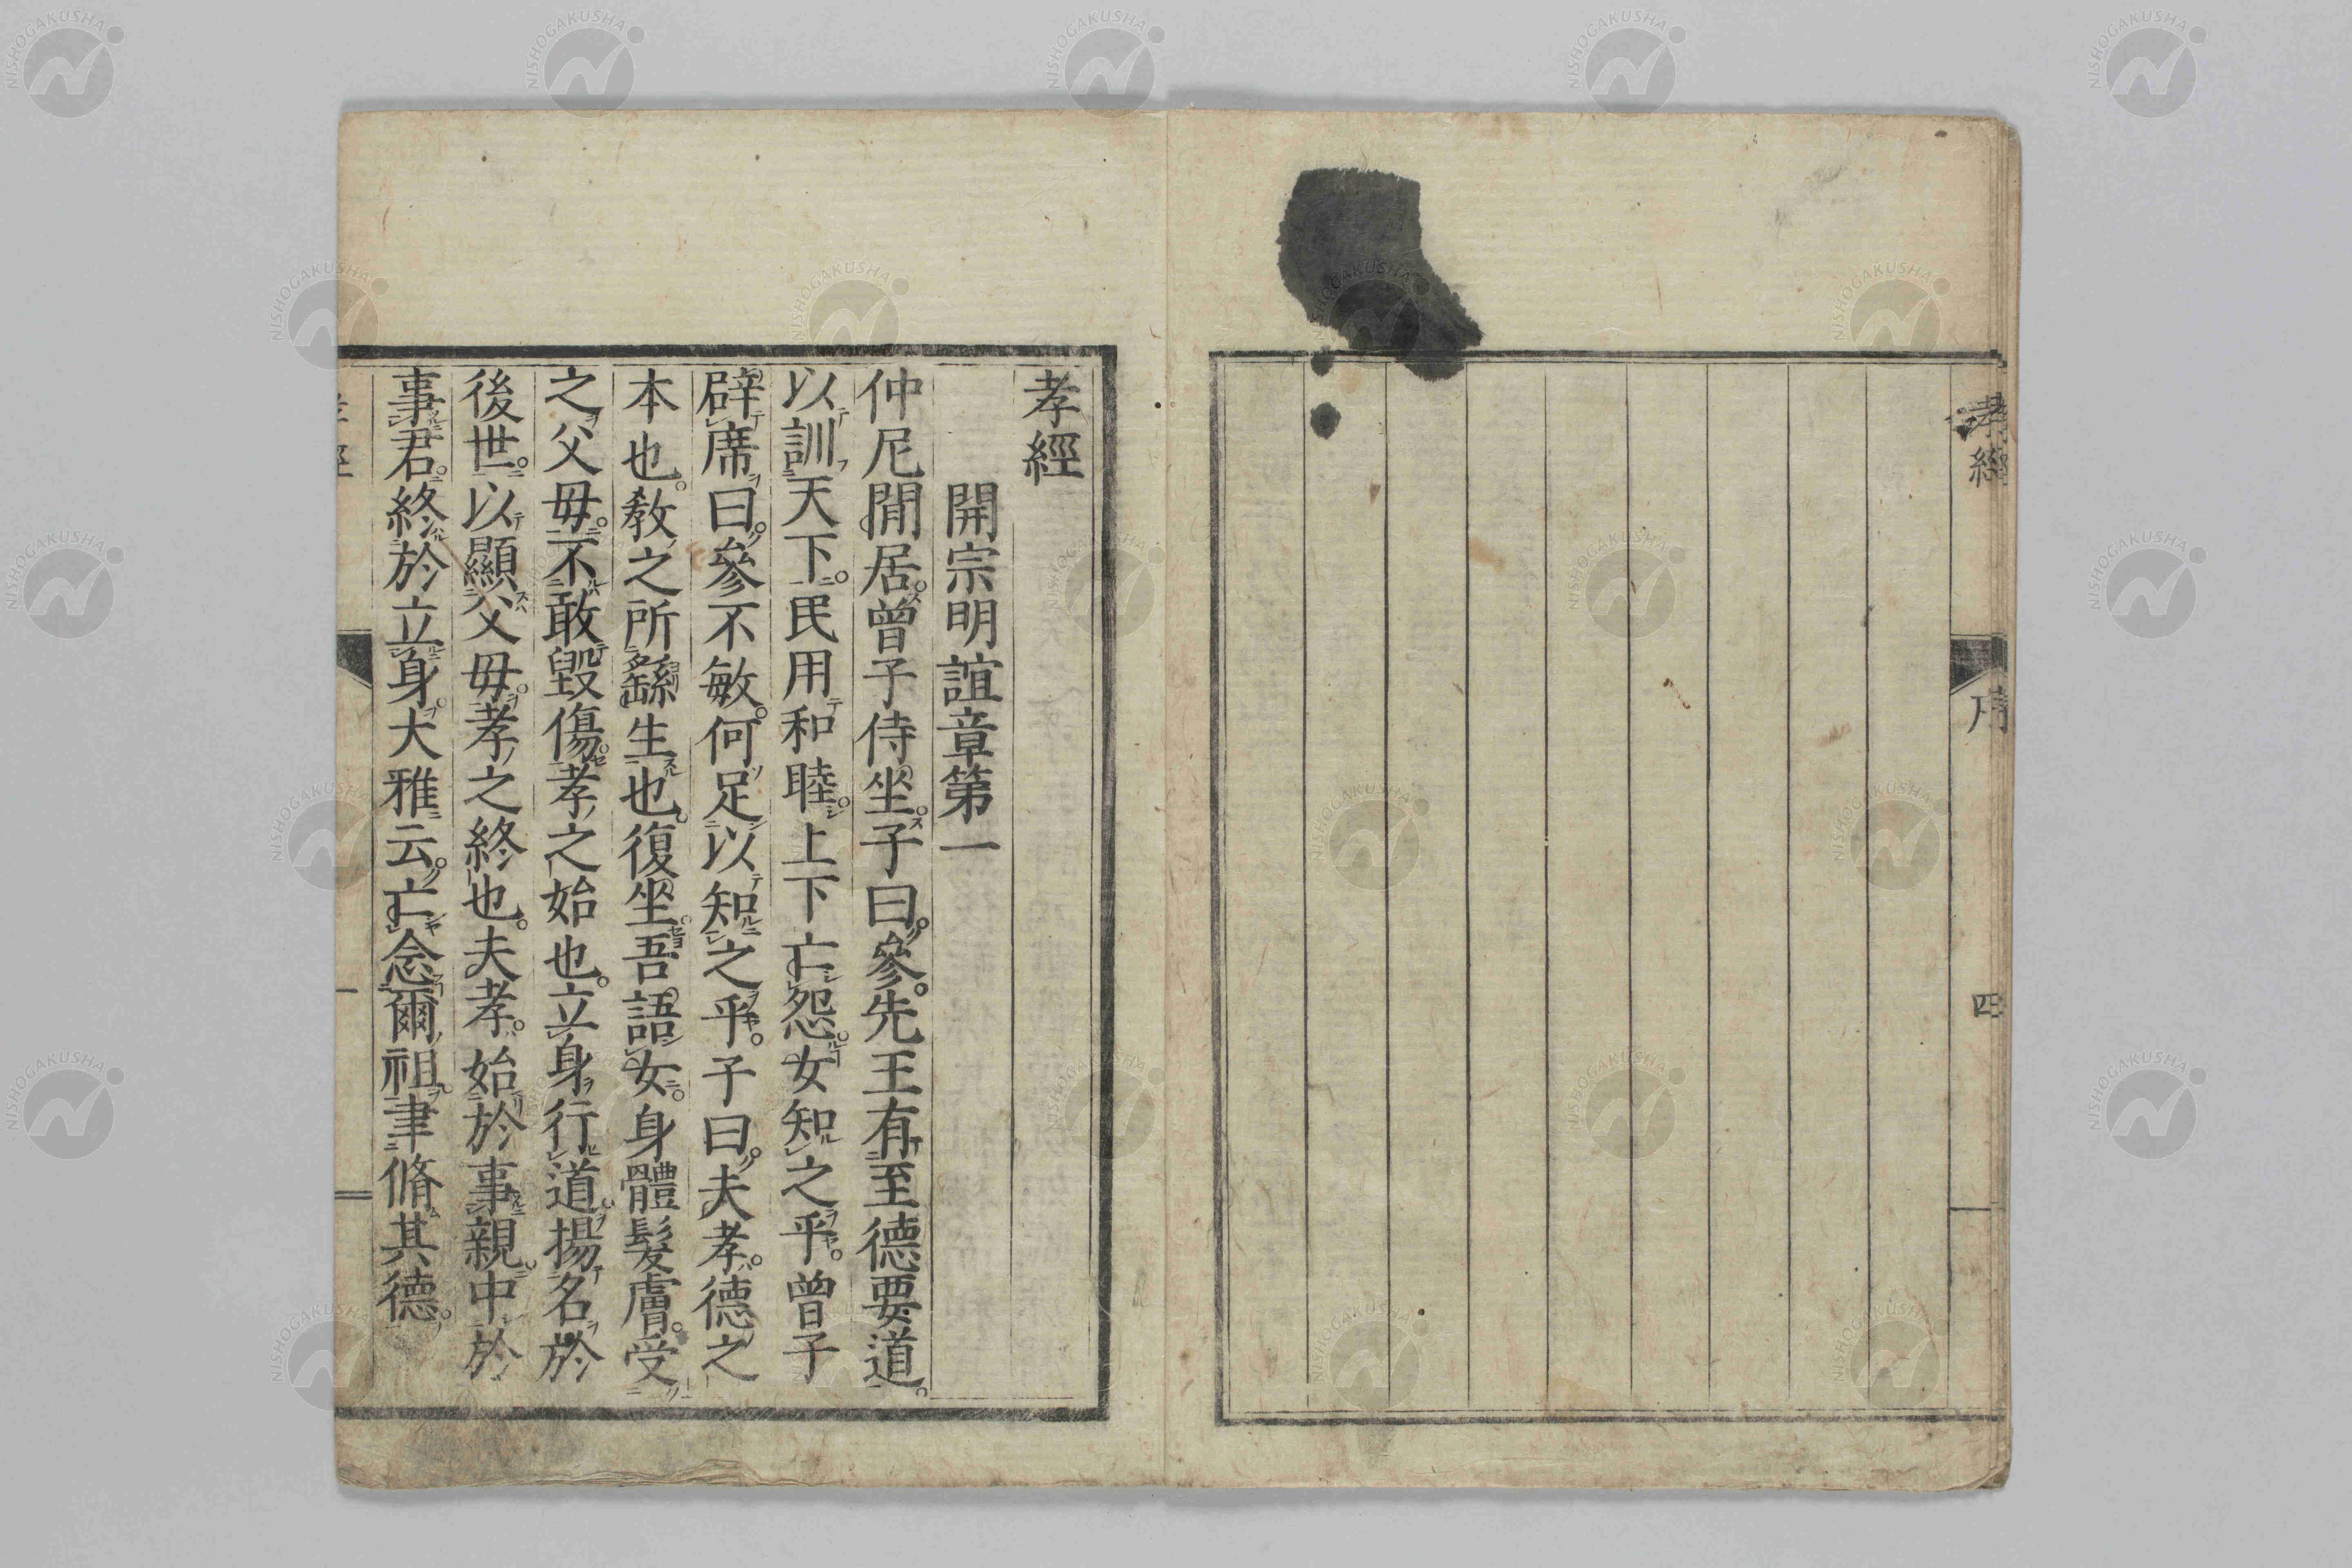 孝經
序
四
孝經
開宗明誼章第一
仲尼閒居曾子侍坐子曰參先王有至德要道
以訓天下民用和睦上下亡怨女知之乎曾子
辟席曰參不敏何足以知之乎子曰夫孝德之
本也敎之所繇生也復坐吾語女身體髮膚受
之父母不敢毀傷孝之始也立身行道揚名於
後世以顯父母孝之終也夫孝始於事親中於
事君終於立身大雅云亡念爾祖聿脩其德
一
NISHOGAKUSHA